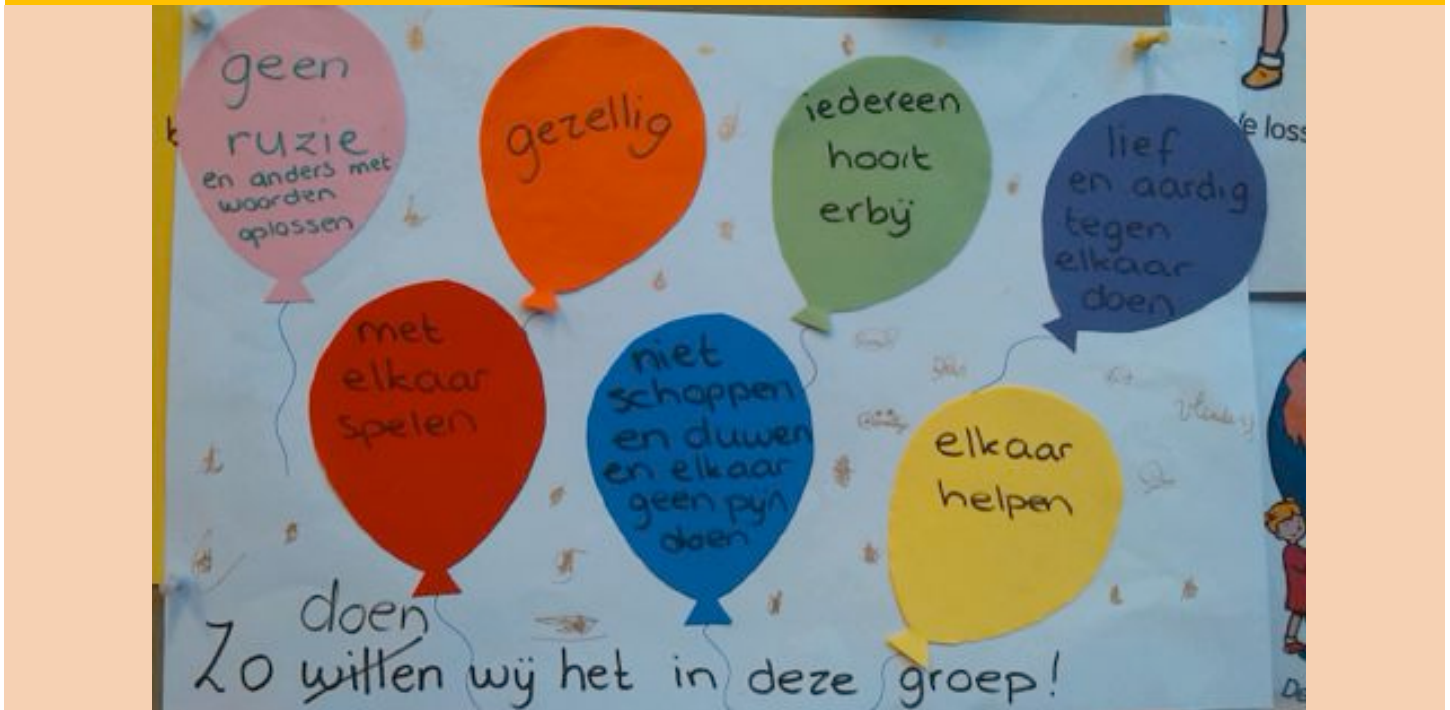 geen
ruzie
en anders met
woorden
oplossen
gezellig
iedereen
hoort
erbij
lief
en aardig
tegen
elkaar
doen
met
elkaar
spelen
niet
schoppen
en duwen
en elkaar
geen pijn
doen
elkaar
helpen
doen
Zo willen wij het in deze groep!